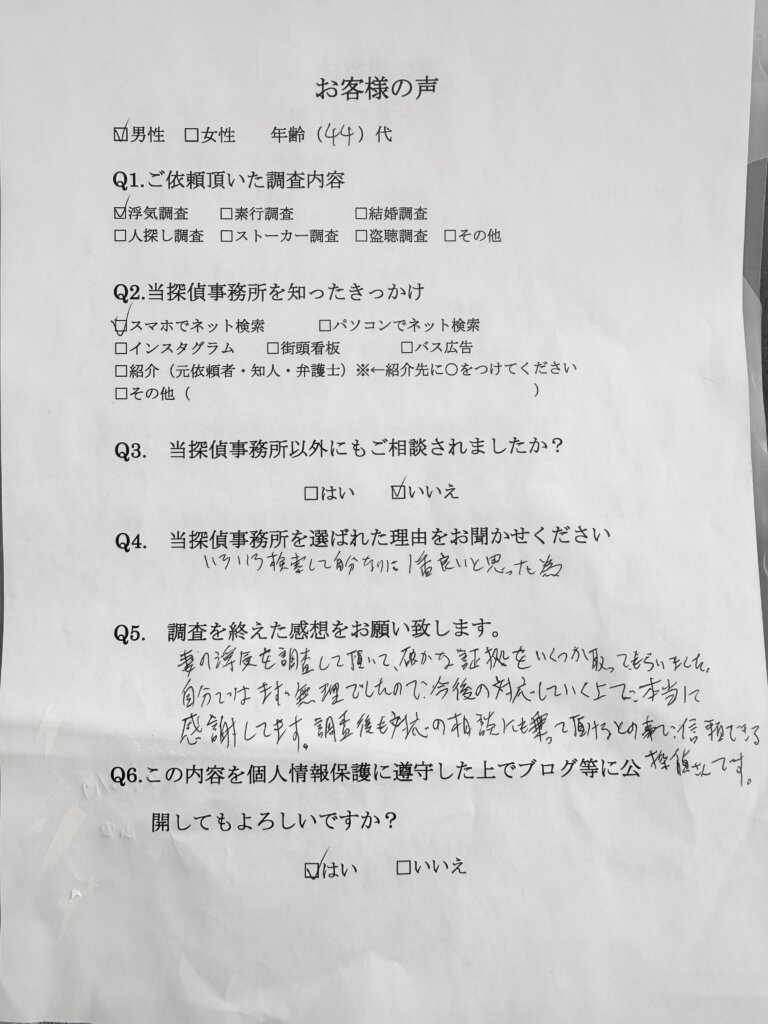 お客様の声
☑男性 □女性 年齢（44）代
Q1.ご依頼頂いた調査内容
☑浮気調査 □素行調査 □結婚調査
□人探し調査 □ストーカー調査 □盗聴調査 □その他
Q2.当探偵事務所を知ったきっかけ
☑スマホでネット検索 □パソコンでネット検索
□インスタグラム □街頭看板 □バス広告
□紹介（元依頼者・知人・弁護士）※←紹介先に〇をつけてください
□その他（ ）
Q3. 当探偵事務所以外にもご相談されましたか？
□はい ☑いいえ
Q4. 当探偵事務所を選ばれた理由をお聞かせください
いろいろ検索して自分なりに1番良いと思った為
Q5. 調査を終えた感想をお願い致します。
妻の浮気を調査して頂いて、確かな証拠をいくつか取ってもらいました。
自分ではまず無理でしたので、今後の対応していく上で、本当に
感謝してます。調査後も対応の相談にも乗って頂けるとの事で、信頼できる
探偵さんです。
Q6.この内容を個人情報保護に遵守した上でブログ等に公
開してもよろしいですか？
☑はい □いいえ